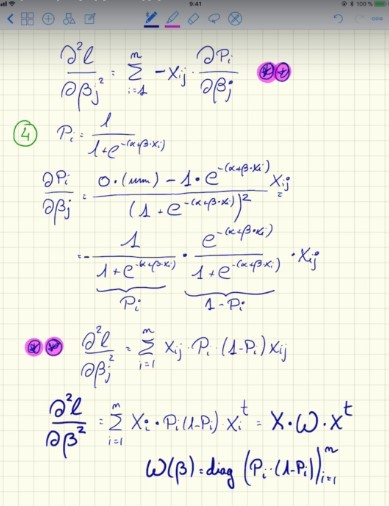 9:41
100 %
∂²l/∂βj² = Σ_{i=1}^{n} -xij · ∂Pi/∂βj
④ Pi = 1/(1+e^{-(α+β·xi)})
∂Pi/∂βj = (0·(um) - 1·e^{-(α+β·xi)})/(1+e^{-(α+β·xi)})² xij
= - 1/(1+e^{-(α+β·xi)}) · e^{-(α+β·xi)}/(1+e^{-(α+β·xi)}) · xij
Pi 1-Pi
∂²l/∂βj² = Σ_{i=1}^{n} xij · Pi (1-Pi) xij
∂²l/∂β² = Σ_{i=1}^{n} xi · Pi(1-Pi) xi^t = X·W·X^t
W(β) = diag (Pi·(1-Pi))_{i=1}^{n}